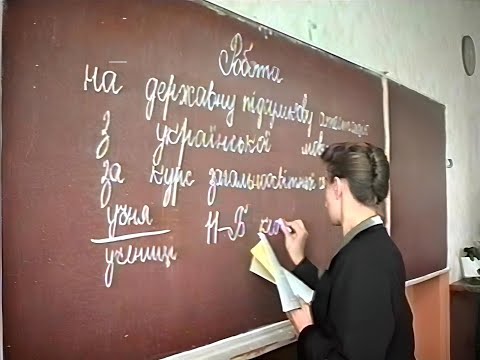 Робота
на державну підсумкову атестацію
з української мов
за курс загальноосвітньої
учня 11-Б кл
учениці